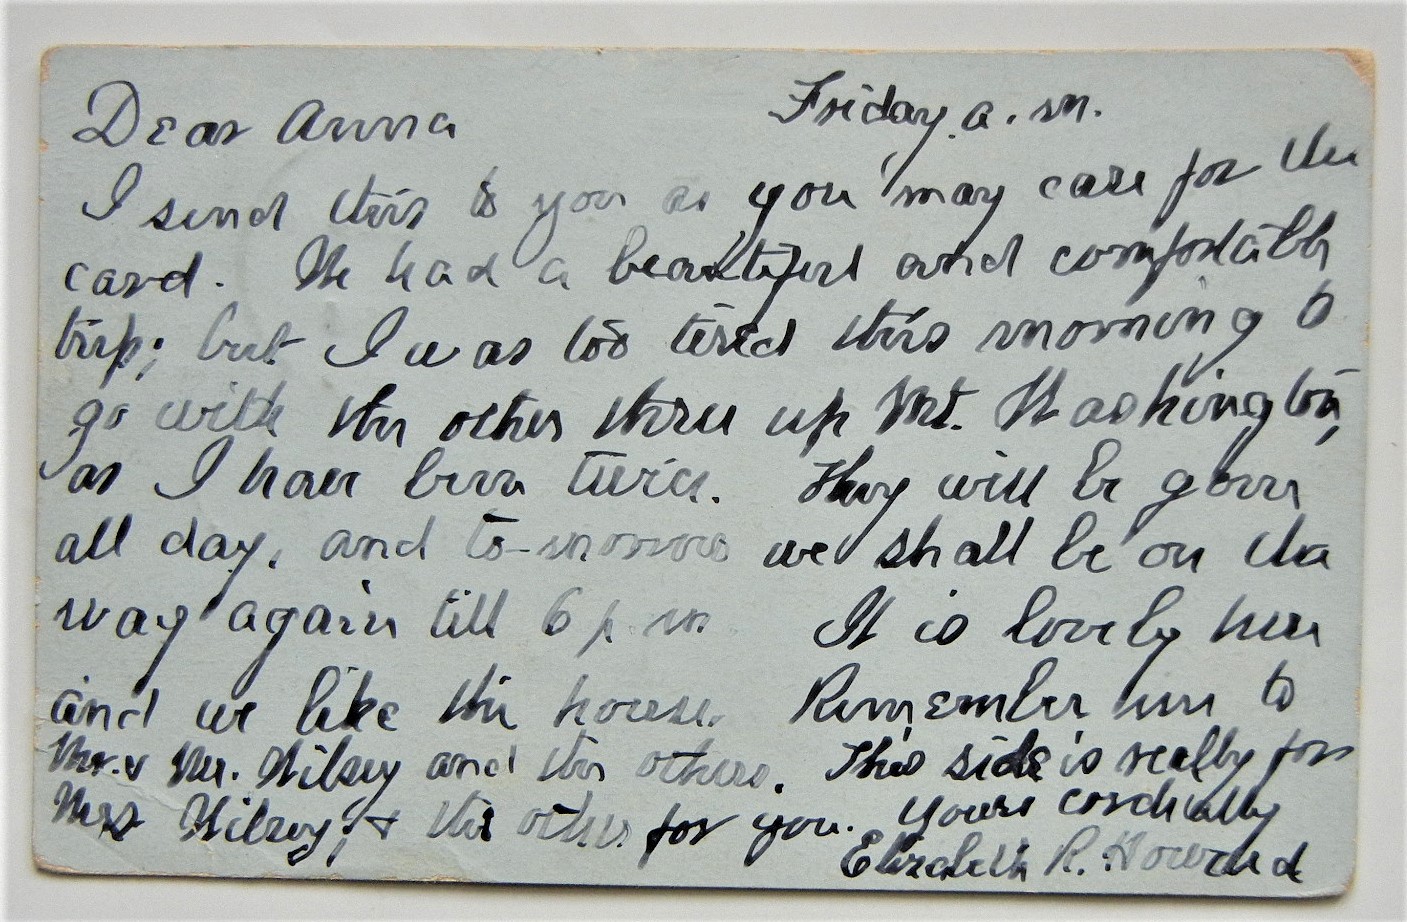 Friday, a.m.
Dear Anna
I send this to you as you may care for the
card. We had a beautiful and comfortable
trip; but I was too tired this morning to
go with the other three up Mt. Washington,
as I have been twice. They will be gone
all day, and to-morrow we shall be on the
way again till 6 p.m. It is lovely here
and we like the house. Remember me to
Mr. & Mr. Wilsey and the others. This side is really for
Mrs Wilsey; & the other for you. Yours cordially
Elizabeth R. Howard